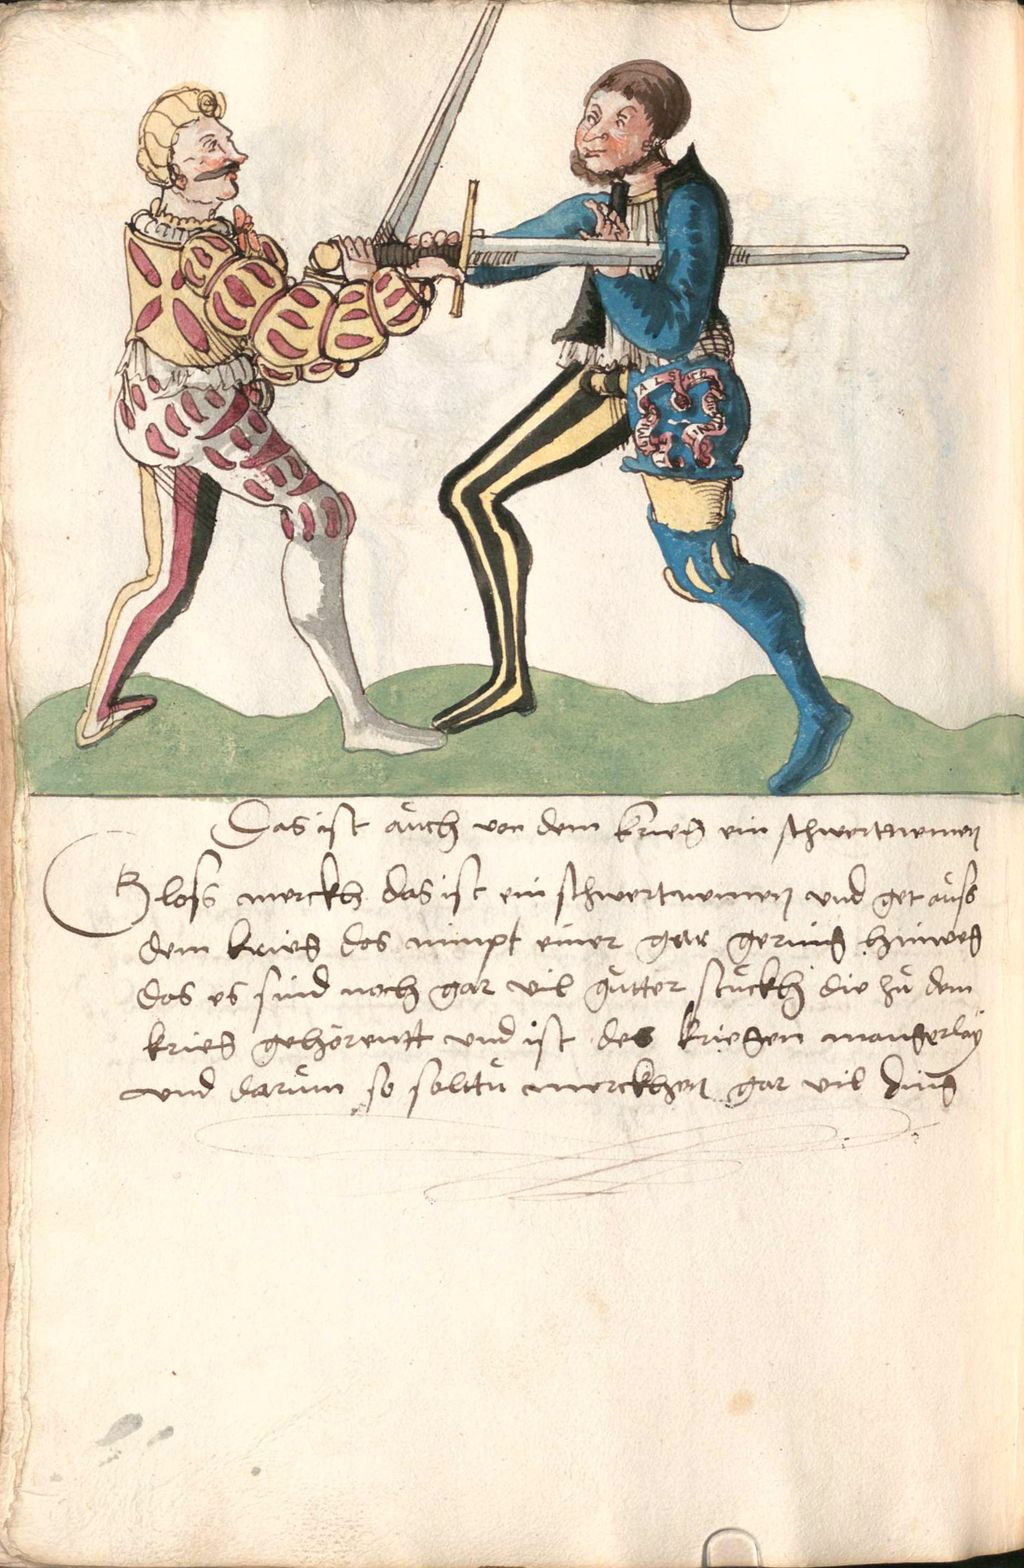 Das ist aůch von dem krieg ein schwertnemen
Gloss merckh das ist ein schwertnemen und get aůss
dem krieg das nimpt einer gar gering hinweg
das es sind noch gar vil gůtter stůckh die zů dem
krieg gehörentt und ist des kriegen mangerlaÿ
und darům so solttů merckhen gar vil ding